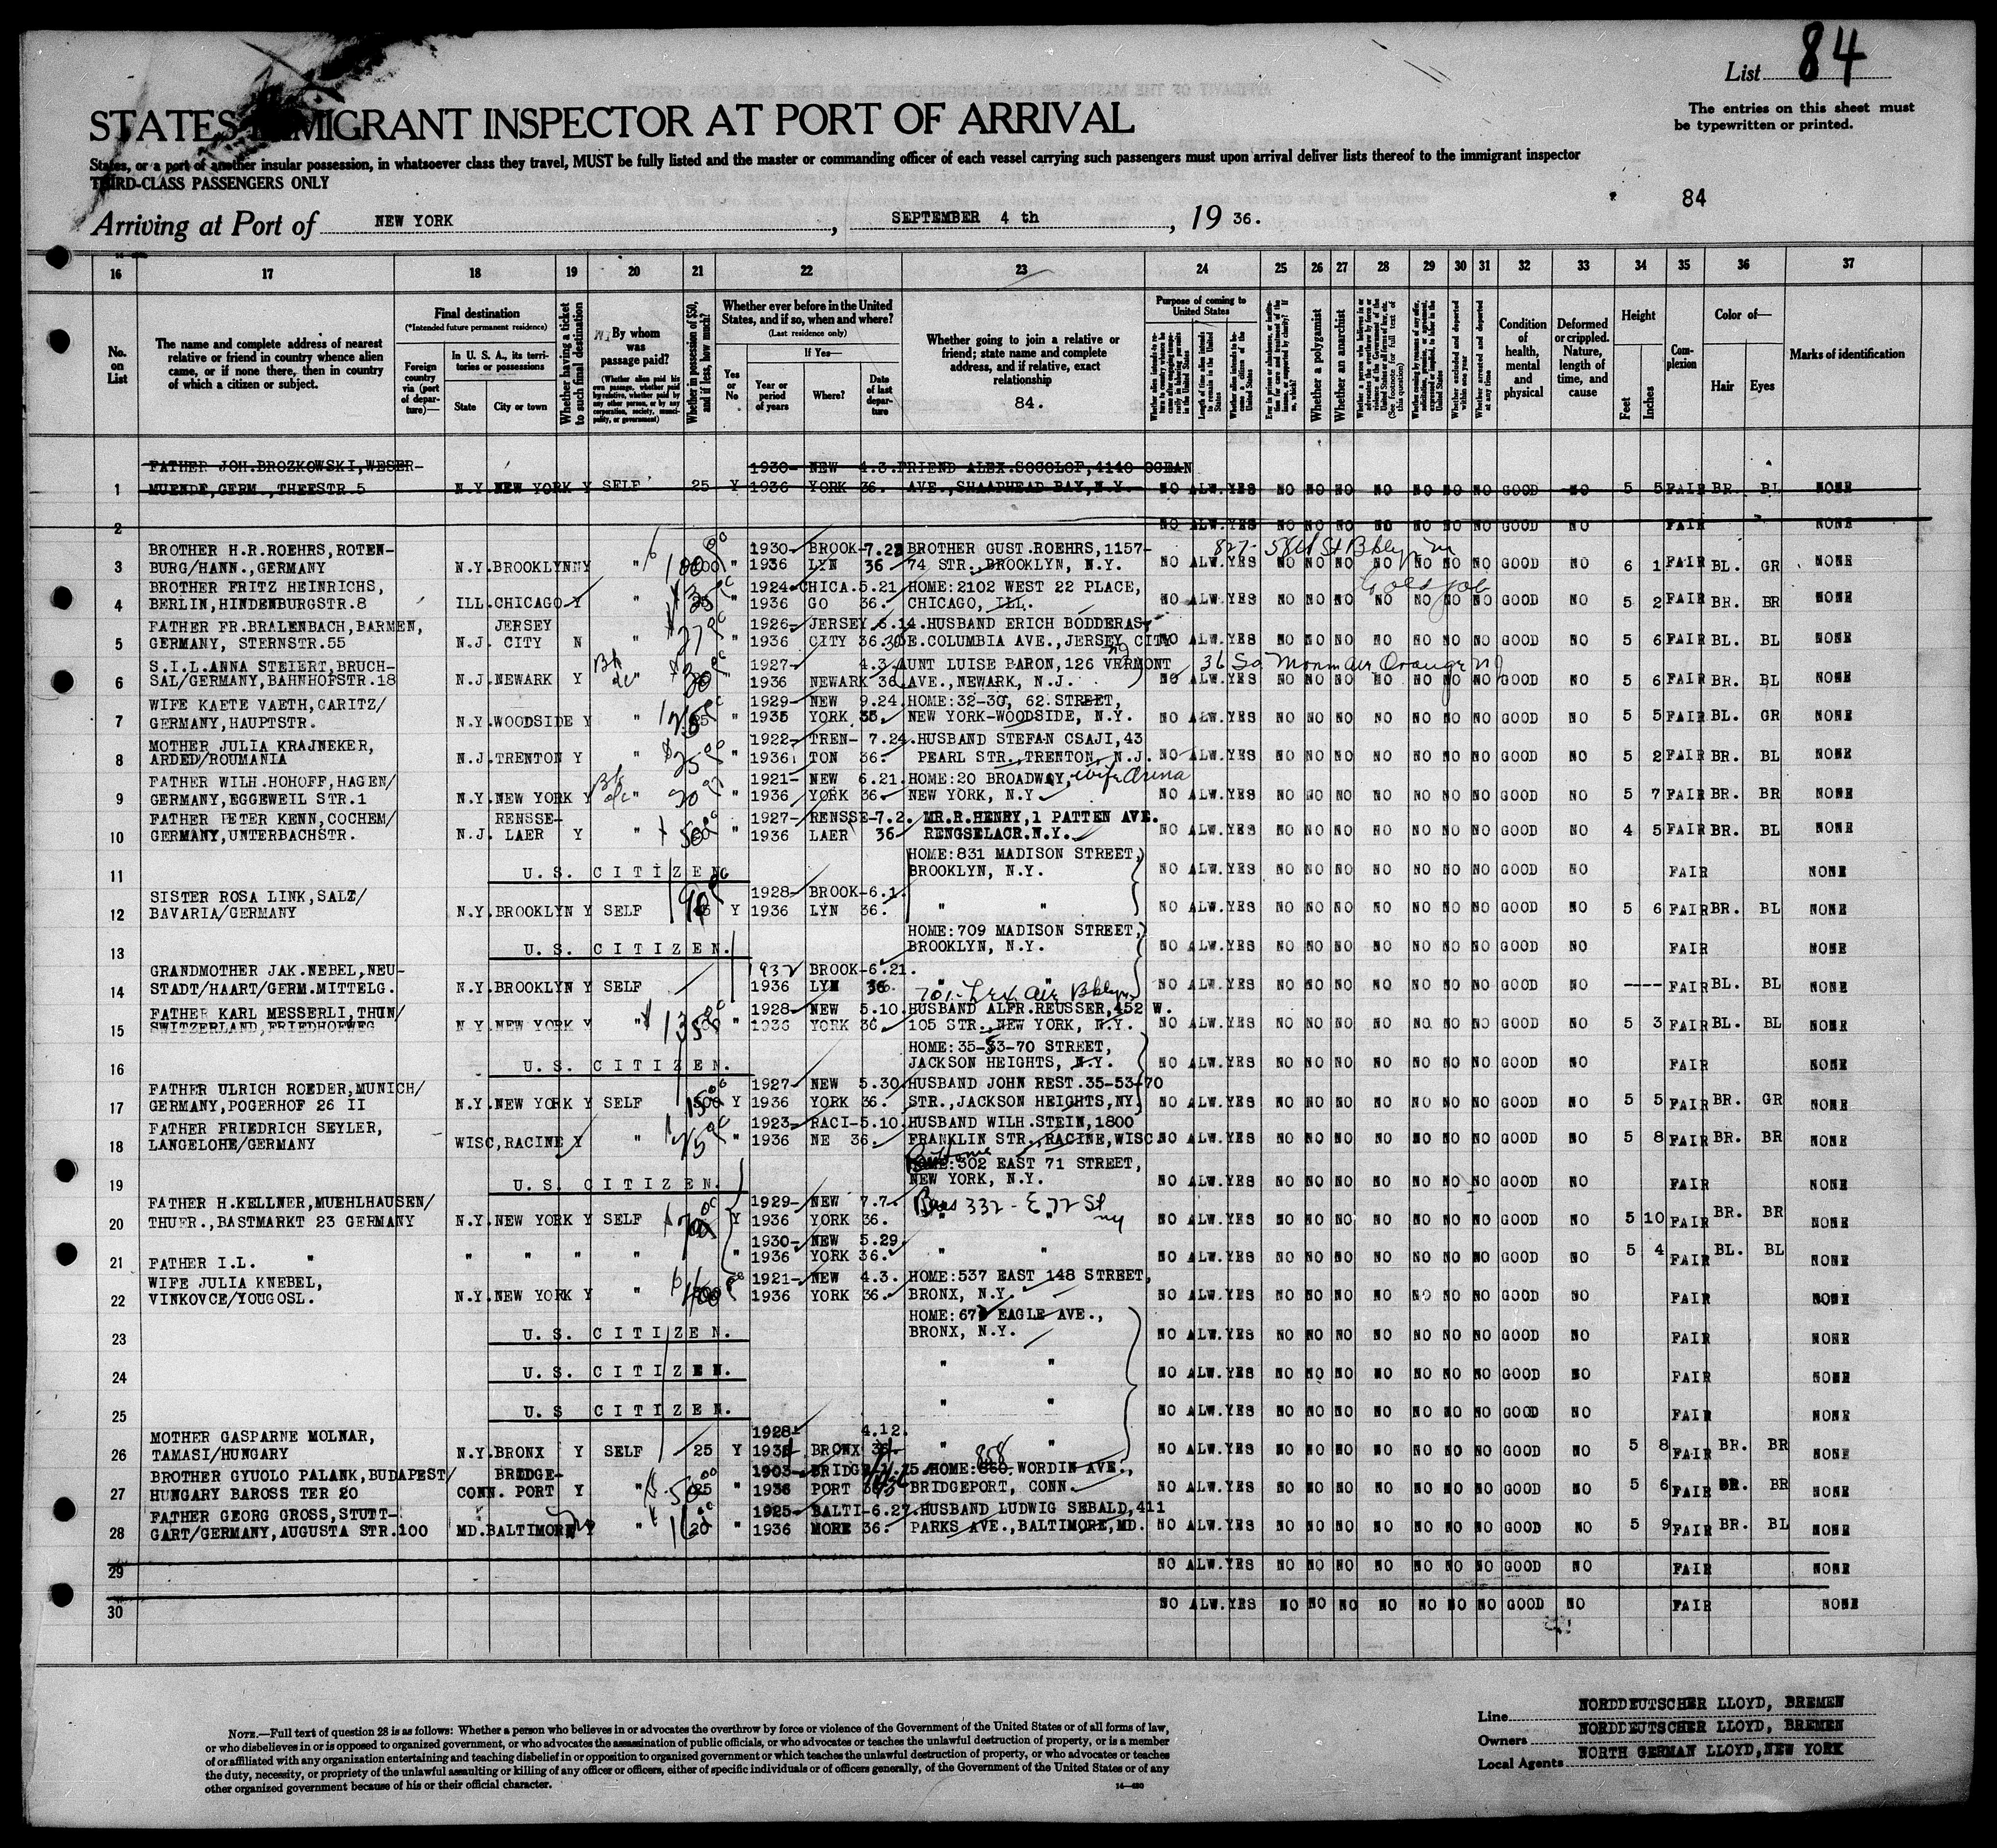 List 84
The entries on this sheet must
be typewritten or printed.
STATES IMMIGRANT INSPECTOR AT PORT OF ARRIVAL
States, or a port of another insular possession, in whatsoever class they travel, MUST be fully listed and the master or commanding officer of each vessel carrying such passengers must upon arrival deliver lists thereof to the immigrant inspector
THIRD-CLASS PASSENGERS ONLY
84
Arriving at Port of NEW YORK, SEPTEMBER 4 th, 19 36.
16 17 18 19 20 21 22 23 24 25 26 27 28 29 30 31 32 33 34 35 36 37
No. on List
The name and complete address of nearest relative or friend in country whence alien came, or if none there, then in country of which a citizen or subject.
Final destination
(*Intended future permanent residence)
Foreign country via (port of departure)—
In U. S. A., its territories or possessions
State
City or town
Whether having a ticket to such final destination
By whom was passage paid?
(Whether alien paid his own passage, whether paid by relative, whether paid by any other person, or by any corporation, society, municipality, or government)
Whether in possession of $50, and if less, how much?
Whether ever before in the United States, and if so, when and where?
(Last residence only)
Yes or No
If Yes—
Year or period of years
Where?
Date of last departure
Whether going to join a relative or friend; state name and complete address, and if relative, exact relationship
84.
Purpose of coming to United States
Length of time alien intends to remain in the United States
Whether alien intends to become a citizen of the United States
Whether a polygamist
Whether an anarchist
(See footnote for full text of this question)
Whether excluded and deported within one year
Whether arrested and deported at any time
Condition of health, mental and physical
Deformed or crippled. Nature, length of time, and cause
Height
Feet
Inches
Complexion
Color of—
Hair
Eyes
Marks of identification
FATHER JOH.BROZKOWSKI,WESER- 1930- NEW 4.3. FRIEND ALEX.SOCOLOF,4140 OCEAN
1 MUENDE,GERM.,THEESTR.5 N.Y. NEW YORK Y SELF 25 Y 1936 YORK 36. AVE.,SHAAPHEAD BAY,N.Y. NO ALW. YES NO NO NO NO NO NO NO GOOD NO 5 5 FAIR BR. BL NONE
2 NO ALW. YES NO NO NO NO NO NO NO GOOD NO FAIR NONE
BROTHER H.R.ROEHRS,ROTEN- 1930- BROOK- 7.22 BROTHER GUST.ROEHRS,1157-
3 BURG/HANN.,GERMANY N.Y. BROOKLYN N.Y " 1936 LYN 36 74 STR.,BROOKLYN, N.Y. NO ALW. YES NO NO NO NO NO NO NO GOOD NO 6 1 FAIR BL. GR NONE
BROTHER FRITZ HEINRICHS, 1924- CHICA. 5.21 HOME:2102 WEST 22 PLACE,
4 BERLIN,HINDENBURGSTR.8 ILL. CHICAGO Y " " 1936 GO 36. CHICAGO, ILL. NO ALW. YES NO NO NO NO NO NO NO GOOD NO 5 2 FAIR BR. BR NONE
FATHER FR.BRALENBACH,BARMEN, JERSEY 1926- JERSEY 6.14. HUSBAND ERICH BODDERAS,
5 GERMANY, STERNSTR.55 N.J. CITY N " " 1936 CITY 36. 30E.COLUMBIA AVE.,JERSEY CITY NO ALW. YES NO NO NO NO NO NO NO GOOD NO 5 6 FAIR BL. BL NONE
S.I.L.ANNA STEIERT,BRUCH- 1927- 4.3. AUNT LUISE BARON,126 VERMONT
6 SAL/GERMANY,BAHNHOFSTR.18 N.J. NEWARK Y " " 1936 NEWARK 36. AVE.,NEWARK, N.J. NO ALW. YES NO NO NO NO NO NO NO GOOD NO 5 6 FAIR BR. BL NONE
WIFE KAETE VAETH,CARITZ/ 1929- NEW 9.24. HOME:32-30, 62.STREET,
7 GERMANY,HAUPTSTR. N.Y. WOODSIDE Y " " 1935 YORK 35. NEW YORK-WOODSIDE, N.Y. NO ALW. YES NO NO NO NO NO NO NO GOOD NO 5 5 FAIR BL. GR NONE
MOTHER JULIA KRAJNEKER, 1922- TREN- 7.24. HUSBAND STEFAN CSAJI,43
8 ARDED/ROUMANIA N.J. TRENTON Y " 25.00 " 1936 TON 36. PEARL STR.,TRENTON, N.J. NO ALW. YES NO NO NO NO NO NO NO GOOD NO 5 2 FAIR BR. BL NONE
FATHER WILH.HOHOFF,HAGEN/ 1921- NEW 6.21. HOME:20 BROADWAY, wife Anna
9 GERMANY,EGGEWEIL STR.1 N.Y. NEW YORK Y " " 1936 YORK 36. NEW YORK, N.Y. NO ALW. YES NO NO NO NO NO NO NO GOOD NO 5 7 FAIR BR. BR NONE
FATHER PETER KENN,COCHEM/ RENSSE- 1927- RENSSE- 7.2. MR.R.HENRY,1 PATTEN AVE.
10 GERMANY,UNTERBACHSTR. N.J. LAER Y " " 1936 LAER 36 RENGSELACR.N.Y. NO ALW. YES NO NO NO NO NO NO NO GOOD NO 4 5 FAIR BR. BL NONE
HOME:831 MADISON STREET,
11 U. S. CITIZEN BROOKLYN, N.Y. NO ALW. YES NO NO NO NO NO NO NO GOOD NO FAIR NONE
SISTER ROSA LINK,SALZ/ 1928- BROOK- 6.1.
12 BAVARIA/GERMANY N.Y. BROOKLYN Y SELF Y 1936 LYN 36. " " NO ALW. YES NO NO NO NO NO NO NO GOOD NO 5 6 FAIR BR. BL NONE
HOME:709 MADISON STREET,
13 U. S. CITIZEN. BROOKLYN, N.Y. NO ALW. YES NO NO NO NO NO NO NO GOOD NO FAIR NONE
GRANDMOTHER JAK.NEBEL,NEU- 1932 BROOK- 6.21.
14 STADT/HAART/GERM.MITTELG. N.Y. BROOKLYN Y SELF 1936 LYN 36. " " NO ALW. YES NO NO NO NO NO NO NO GOOD NO ---- FAIR BL. BL NONE
FATHER KARL MESSERLI,THUN/ 1928- NEW 5.10. HUSBAND ALFR.REUSSER,452 W.
15 SWITZERLAND,FRIEDHOFWEG N.Y. NEW YORK Y " " 1936 YORK 36. 105 STR.,NEW YORK, N.Y. NO ALW. YES NO NO NO NO NO NO NO GOOD NO 5 3 FAIR BL. BL NONE
HOME:35-53-70 STREET,
16 U. S. CITIZEN. JACKSON HEIGHTS, N.Y. NO ALW. YES NO NO NO NO NO NO NO GOOD NO FAIR NONE
FATHER ULRICH ROEDER,MUNICH/ 1927- NEW 5.30. HUSBAND JOHN REST.35-53-70
17 GERMANY,POGERHOF 26 II N.Y. NEW YORK Y SELF Y 1936 YORK 36. STR.,JACKSON HEIGHTS,NY. NO ALW. YES NO NO NO NO NO NO NO GOOD NO 5 5 FAIR BR. GR NONE
FATHER FRIEDRICH SEYLER, 1923- RACI- 5.10. HUSBAND WILH.STEIN,1800
18 LANGELOHE/GERMANY WISC, RACINE Y " " 1936 NE 36. FRANKLIN STR.,RACINE,WISC. NO ALW. YES NO NO NO NO NO NO NO GOOD NO 5 8 FAIR BR. BR NONE
HOME:302 EAST 71 STREET,
19 U.S. CITIZEN. NEW YORK, N.Y. NO ALW. YES NO NO NO NO NO NO NO GOOD NO FAIR NONE
FATHER H.KELLNER,MUEHLHAUSEN/ 1929- NEW 7.7. 332 - E 72 St
20 THUER.,BASTMARKT 23 GERMANY N.Y. NEW YORK Y SELF Y 1936 YORK 36. " " ny NO ALW. YES NO NO NO NO NO NO NO GOOD NO 5 10 FAIR BR. BR NONE
1930- NEW 5.29.
21 FATHER I.L. " " " " " " 1936 YORK 36. " " NO ALW. YES NO NO NO NO NO NO NO GOOD NO 5 4 FAIR BL. BL NONE
WIFE JULIA KNEBEL, 1921- NEW 4.3. HOME:537 EAST 148 STREET,
22 VINKOVCE/YOUGOSL. N.Y. NEW YORK Y " 1936 YORK 36. BRONX, N.Y. NO ALW. YES NO NO NO NO NO NO NO GOOD NO FAIR NONE
HOME: EAGLE AVE.,
23 U. S. CITIZEN. BRONX, N.Y. NO ALW. YES NO NO NO NO NO NO NO GOOD NO FAIR NONE
24 U. S. CITIZEN. " " NO ALW. YES NO NO NO NO NO NO NO GOOD NO FAIR NONE
25 U. S CITIZEN. " " NO ALW. YES NO NO NO NO NO NO NO GOOD NO FAIR NONE
MOTHER GASPARNE MOLNAR, 1928- 4.12.
26 TAMASI/HUNGARY N.Y. BRONX Y SELF 25 Y BRONX " " NO ALW. YES NO NO NO NO NO NO NO GOOD NO 5 8 FAIR BR. BR NONE
BROTHER GYUOLO PALANK,BUDAPEST/ BRIDGE- 1903- BRIDG HOME: 858 WORDIN AVE.,
27 HUNGARY BAROSS TER 20 CONN. PORT Y " 50.00 " 1936 PORT BRIDGEPORT, CONN. NO ALW. YES NO NO NO NO NO NO NO GOOD NO 5 6 FAIR BR. BR NONE
FATHER GEORG GROSS,STUTT- 1925- BALTI- 6.27. HUSBAND LUDWIG SEBALD,411
28 GART/GERMANY,AUGUSTA STR.100 MD. BALTIMORE " " 1936 MORE 36. PARKS AVE.,BALTIMORE,MD. NO ALW. YES NO NO NO NO NO NO NO GOOD NO 5 9 FAIR BR. BL NONE
29 NO ALW. YES NO NO NO NO NO NO NO GOOD NO FAIR NONE
30 NO ALW. YES NO NO NO NO NO NO NO GOOD NO FAIR NONE
NOTE.—Full text of question 28 is as follows: Whether a person who believes in or advocates the overthrow by force or violence of the Government of the United States or of all forms of law,
or who disbelieves in or is opposed to organized government, or who advocates the assassination of public officials, or who advocates or teaches the unlawful destruction of property, or is a member
of or affiliated with any organization entertaining and teaching disbelief in or opposition to organized government or which teaches the unlawful destruction of property, or who advocates or teaches
the duty, necessity, or propriety of the unlawful assaulting or killing of any officer or officers, either of specific individuals or of officers generally, of the Government of the United States or of any
other organized government because of his or their official character.
14—480
Line NORDDEUTSCHER LLOYD, BREMEN
Owners NORDDEUTSCHER LLOYD, BREMEN
Local Agents NORTH GERMAN LLOYD,NEW YORK